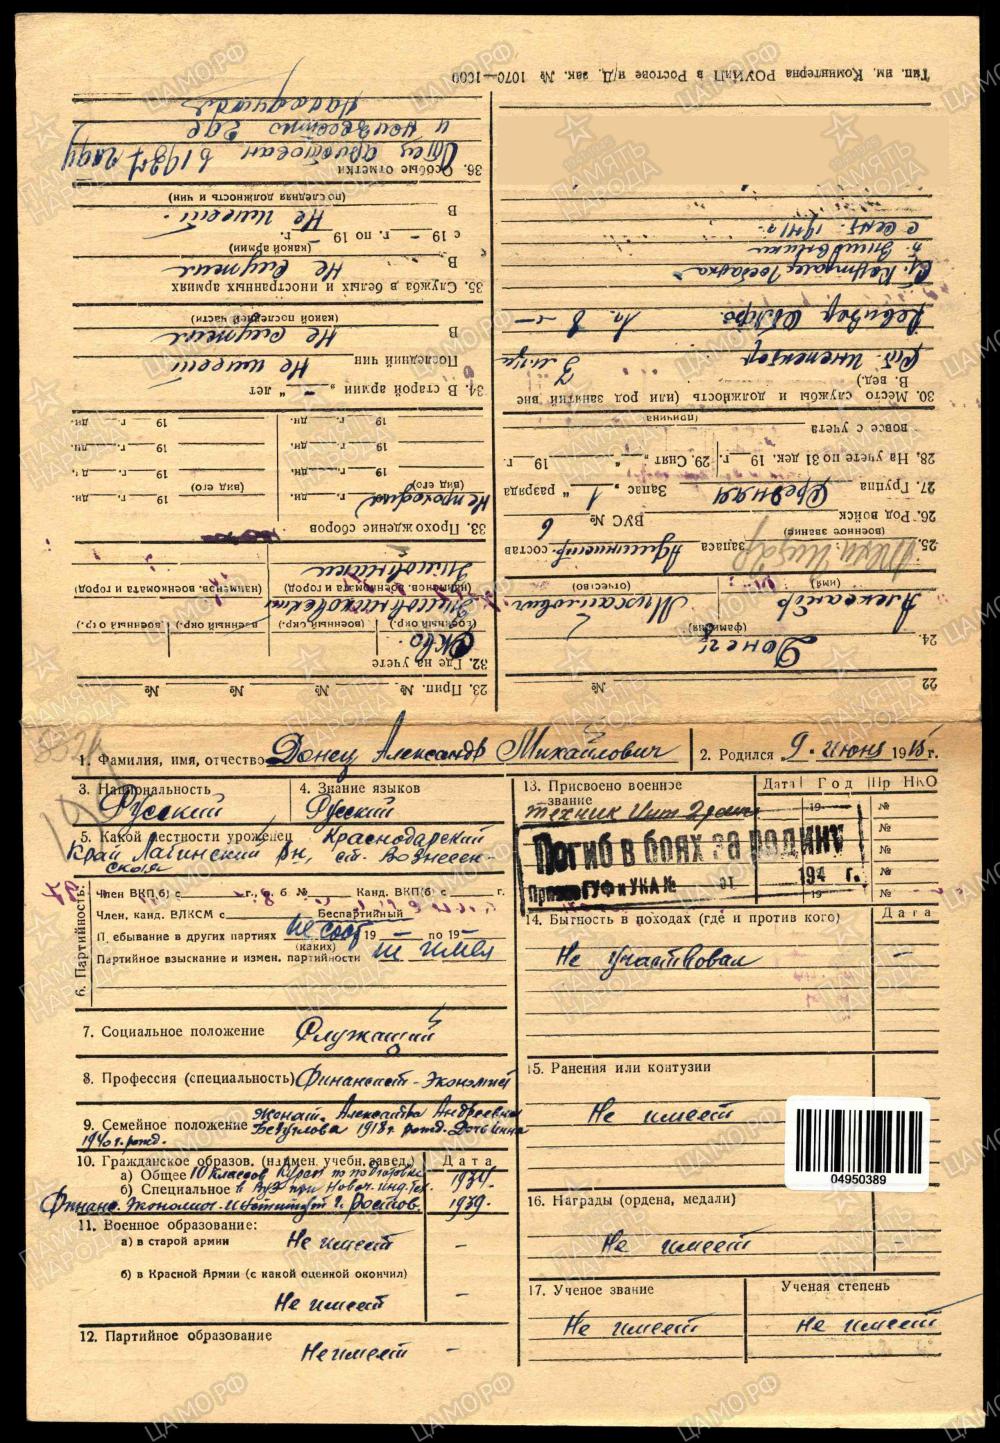 Тип. им. Коминтерна РОУИзП в Ростове н/Д. зак. № 1070—1000
22 №
23. Прип. № № №
24. Донец
(фамилия)
Александр Михайлович
(имя) (отчество)
25. запаса Административ. состав
(военное звание)
26. Род войск ВУС № 6
27. Группа Средняя Запас 1 разряда
28. На учете по 31 дек. 19 г. 29. Снят „ “ 19 г.
вовсе с учета
причина
30. Место службы и должность (или род занятий вне
В. вед.)
Ст. инспектор
Ревизор
с сент. 1941 г.
32. Где на учете
СКВО.
(военный окр.) (военный окр.) (военный окр.)
Зимовниковский
Зимовники
(наименов. военкомата и город) (наименов. военкомата и город)
33. Прохождение сборов
Не проходил
(вид его) (вид его)
19 г. дн. 19 г. дн.
19 г. дн. 19 г. дн.
19 г. дн. 19 г. дн.
19 г. дн. 19 г. дн.
34. В старой армии „ – “ лет
Последний чин Не имеет
В Не служил
(какой последней части)
35. Служба в белых и иностранных армиях
В Не служил
(какой армии)
с 19 – г. по 19 – г.
В Не имеет.
(последняя должность и чин)
36. Особые отметки Отец арестован в 1937 году
и неизвестно где
находится
1. Фамилия, имя, отчество Донец Александр Михайлович
2. Родился 9. июня 1915 г.
3. Национальность
Русский
4. Знание языков
Русский
5. Какой местности уроженец Краснодарский
Край Лабинский рн, ст. Вознесен-
ская
6. Партийность:
Член ВКП(б) с г. б № Канд. ВКП(б) с г.
Член, канд. ВЛКСМ с Беспартийный
Пребывание в других партиях не сост 19 по 19
(каких)
Партийное взыскание и измен. партийности не имел
7. Социальное положение Служащий
8. Профессия (специальность) Финансист-Экономист
9. Семейное положение Женат. Александра Андреевна
Безуглова 1918 г рожд. Дочь Инна
1940 г. рожд.
10. Гражданское образов. (наимен. учебн. завед.) Дата
а) Общее 10 классов Курсы по подготовке 1934.
б) Специальное в ВУЗ при Новоч. инд. тех.
Финанс. Экономич. Институт г. Ростов. 1939.
11. Военное образование:
а) в старой армии Не имеет –
б) в Красной Армии (с какой оценкой окончил)
Не имеет –
12. Партийное образование
Не имеет –
13. Присвоено военное звание
Дата Год Пр НКО
техник Инт 2 ранга 19 №
№
№
19 №
Погиб в боях за родину
Приказ ГУФ и УКА № от 194 г.
14. Бытность в походах (где и против кого) Дата
Не участвовал –
15. Ранения или контузии
Не имеет
04950389
16. Награды (ордена, медали)
Не имеет –
17. Ученое звание Ученая степень
Не имеет Не имеет
ЦАМО.РФ
ПАМЯТЬ НАРОДА